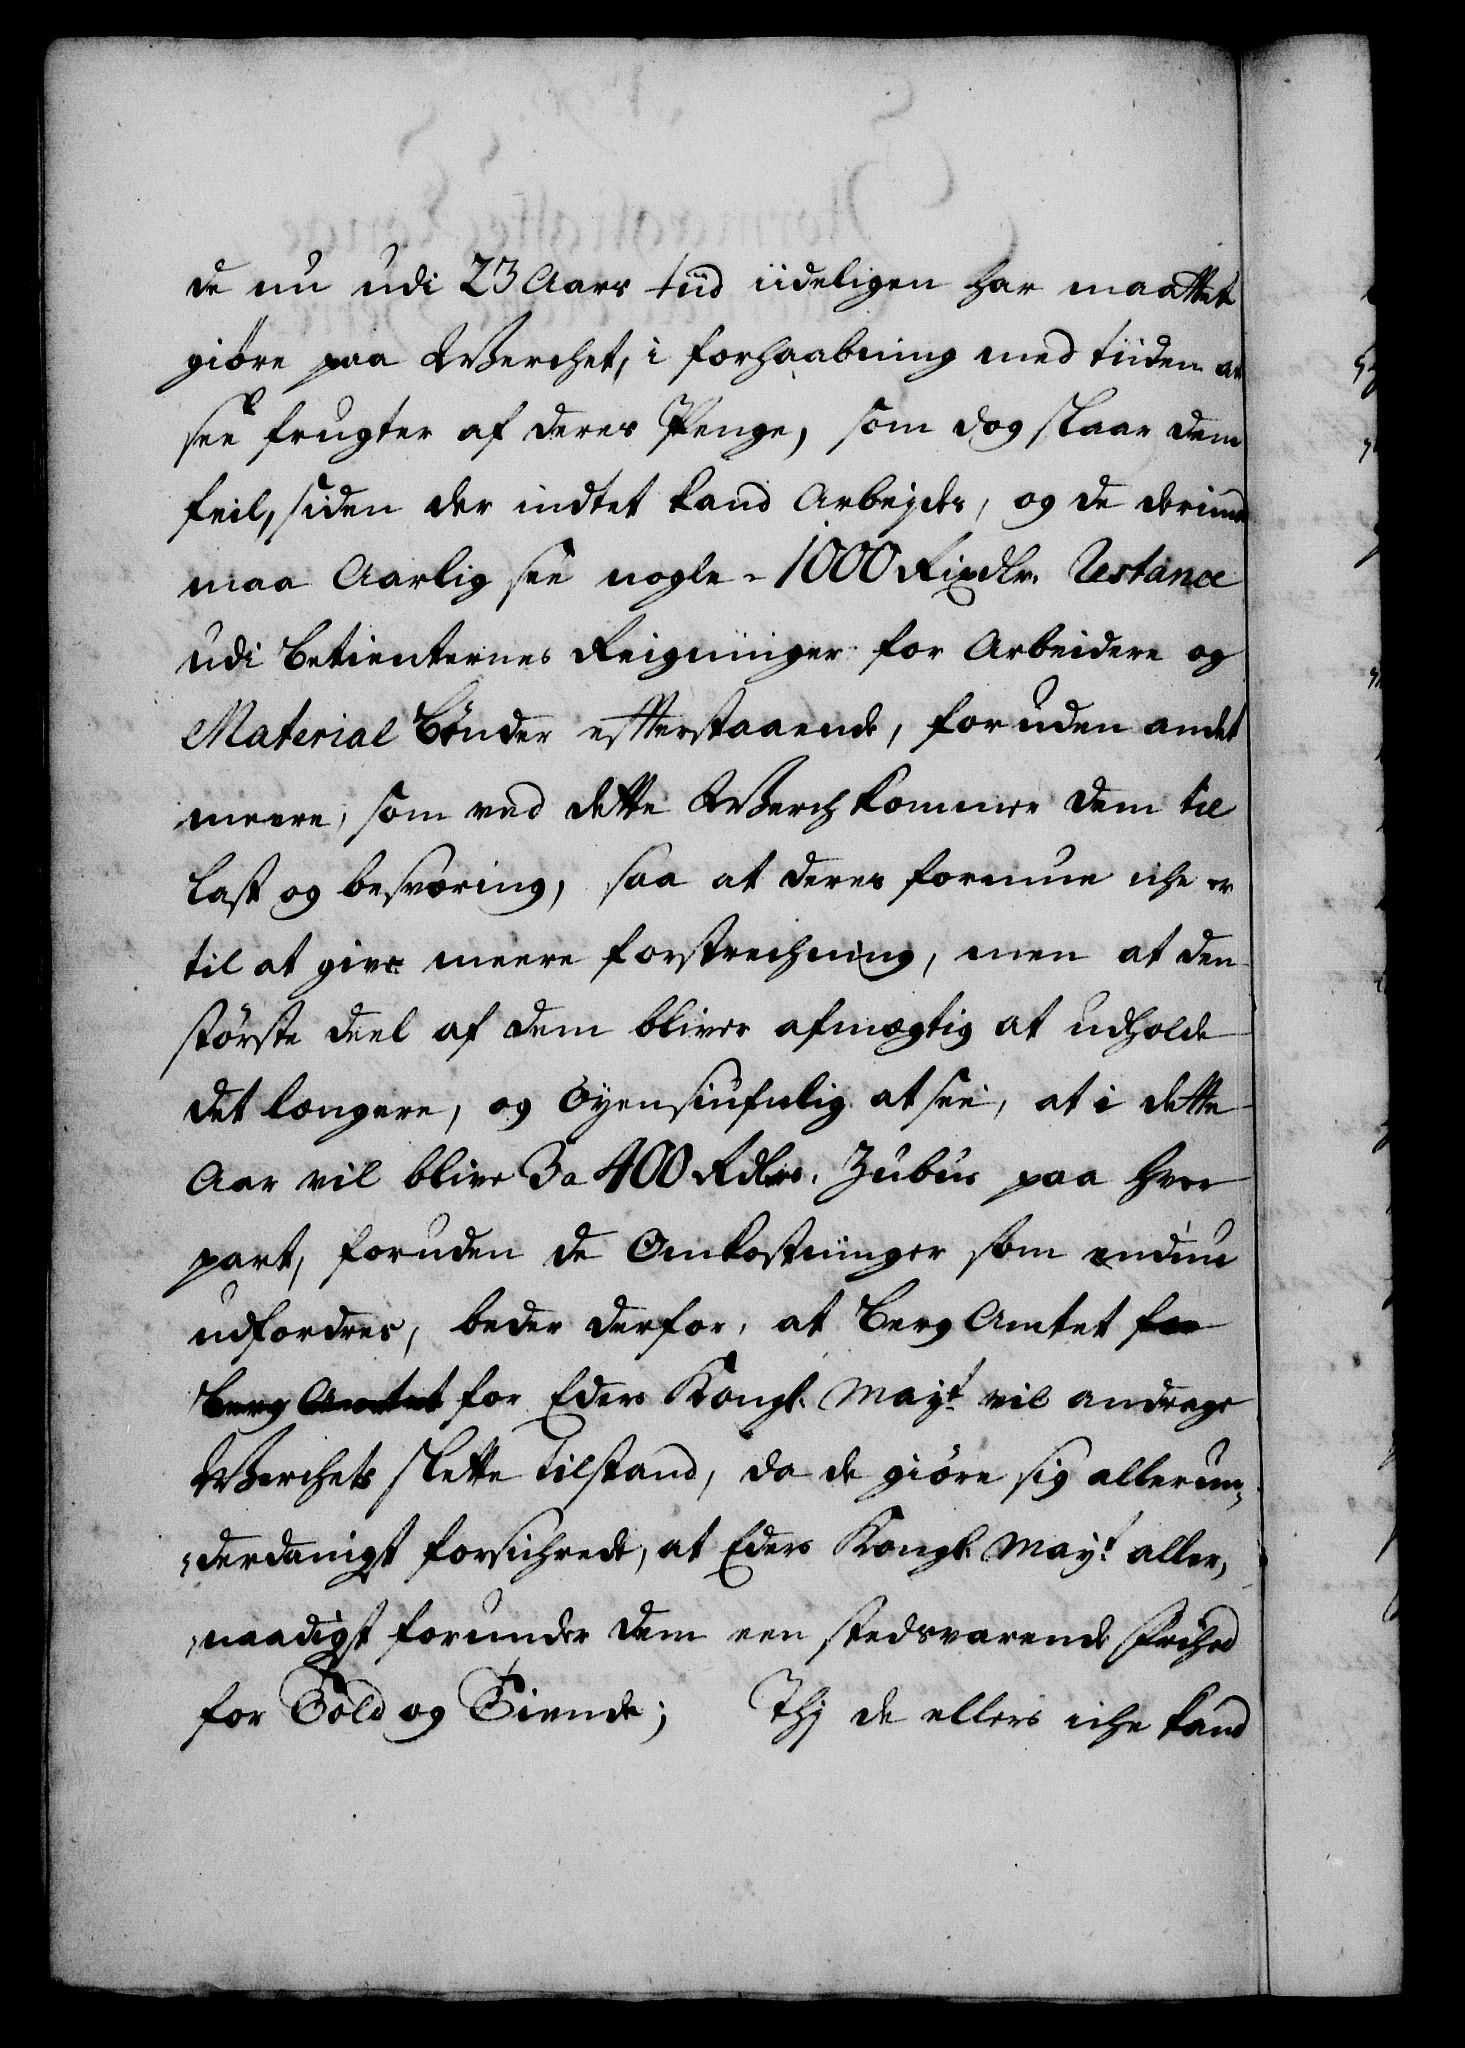 de nu udi 23 Aars tiid iideligen har maattet
giöre paa Werchet, i forhaabning med tiiden at
see frugter af deres Penge, som dog slaar dem
feil, siden der indtet kand Arbejdes, og de derimod
maa Aarlig see nogle 1000 Rixdlr. Restance
udi Betienternes Reigninger for Arbeidere og
Material Bönder efterstaaende, foruden andet
meere, som ved dette Werch kommer dem til
last og besværing, saa at deres formue iche er
til at give meere forstrechning, men at den
störste deel af dem bliver afmægtig at udholde
det længere, og Öyensiunlig at see, at i dette
Aar vil blive 3 a 400 Rdlrs. Zubus paa hver
part, foruden de Omkostninger som endnu
udfordres, beder derfor, at Berg Amtet for
Berg Amtet for Eders Kongl. Mayt. vil andrage
Werchets slette tilstand, da de giöre sig allerun,,
,,derdanigst forsichrede, at Eders Kongl. Mayt. aller,,
,,naadigst forunder dem een stedsvarende Frihed
for Told og Tiende; Thj de ellers iche kand